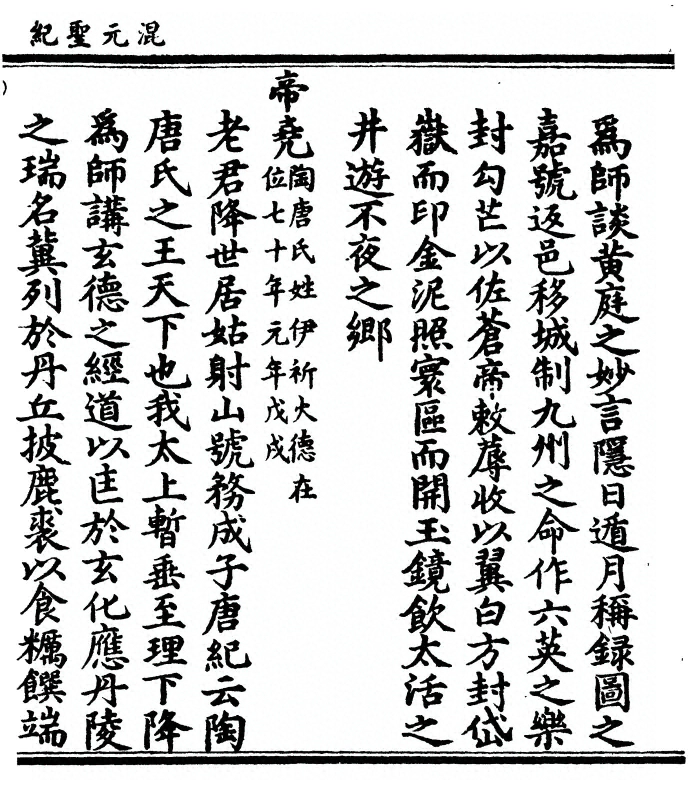 混元聖紀
爲師談黄庭之妙言隱日遁月稱録圖之
嘉號返邑移城制九州之命作六英之樂
封勾芒以佐蒼帝敕蓐收以翼白方封岱
嶽而印金泥照寰區而開玉鏡飲太活之
井遊不夜之鄉
帝堯
陶唐氏姓伊祈火德在
位七十年元年戊戌
老君降世居姑射山號務成子唐紀云陶
唐氏之王天下也我太上暫垂至理下降
爲師講玄德之經道以匡於玄化應丹陵
之瑞名冀列於丹丘披鹿裘以食糲饌端